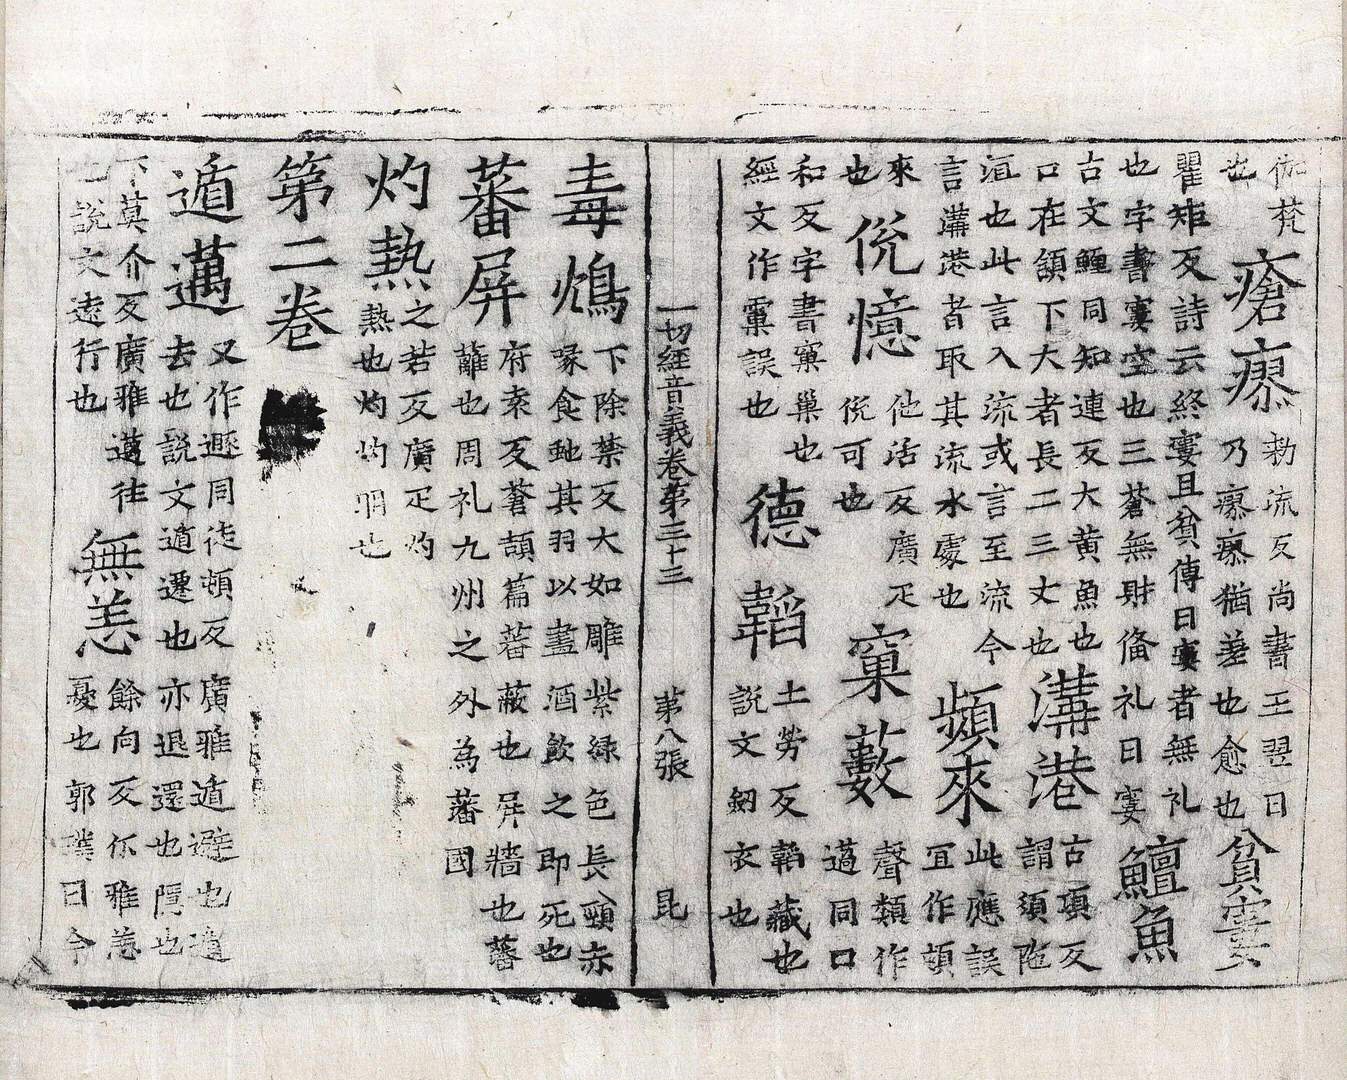 伽梵
也
瘡瘳
勑流反尚書王翌日
乃瘳瘳猶差也愈也
貧寠
瞿矩反詩云終寠且貧傳曰寠者無礼
也字書寠空也三蒼無財俻礼曰寠
鱣魚
古文䱇同知連反大黄魚也
口在頷下大者長二三丈也
溝港
古項反
謂須陁
洹也此言入流或言至流今
言溝港者取其流水處也
頻來
此應誤
冝作頓
來
也
侻憶
他活反廣疋
侻可也
窠藪
聲類作
薖同口
和反字書窠巢也
經文作窼誤也
德韜
土劳反韜藏也
說文劒衣也
一切經音義卷第三十三 第八張 昆
毒鴆
下除禁反大如雕紫緑色長頸赤
喙食虵其羽以畫酒飲之即死也
蕃屏
府袁反蒼頡篇蕃蔽也屏牆也蕃
蘺也周礼九州之外為藩國
灼熱
之若反廣疋灼
熱也灼灼明也
第二卷
遁邁
又作遯同徒頓反廣雅遁避也遁
去也說文遁遷也亦退還也隱也
下莫介反廣雅邁往
也說文遠行也
無恙
餘向反尒雅恙
憂也郭璞曰今